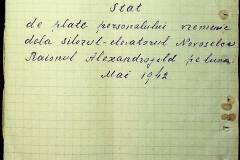 Stat
de plate personalului vremenic
dela silozul-elevatorul Novoselca
Raionul Alexandrofeld pe luna
Mai 1942